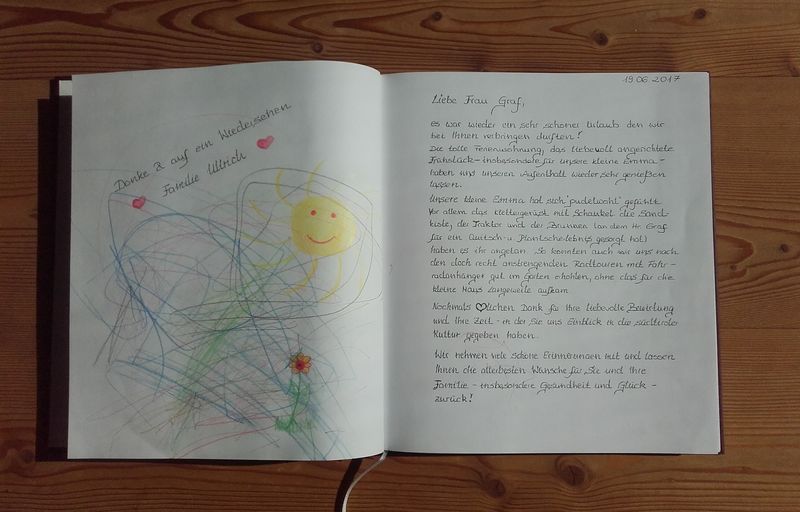 Danke & auf ein Wiedersehen
Familie Ullrich
19.06.2017
Liebe Frau Graf,
es war wieder ein sehr schöner Urlaub den wir
bei Ihnen verbringen durften!
Die tolle Ferienwohnung, das liebevoll angerichtete
Frühstück - insbesondere für unsere kleine Emma -
haben uns unseren Aufenthalt wieder sehr genießen
lassen.
Unsere kleine Emma hat sich "pudelwohl" gefühlt.
Vor allem das Klettergerüst mit Schaukel, die Sand-
kiste, der Traktor und der Brunnen (an dem Hr. Graf
für ein Quitsch- u. Plantscherlebnis gesorgt hat)
haben es ihr angetan. So konnten auch wir uns nach
den doch recht anstrengenden Radtouren mit Fahr-
radanhänger gut im Garten erholen, ohne das für die
kleine Maus Langeweile aufkam.
Nochmals ♡lichen Dank für Ihre liebevolle Bewirtung
und Ihre Zeit - in der Sie uns Einblick in die südtiroler
Kultur gegeben haben.
Wir nehmen viele schöne Erinnerungen mit und lassen
Ihnen die allerbesten Wünsche für Sie und Ihre
Familie - insbesondere Gesundheit und Glück -
zurück!